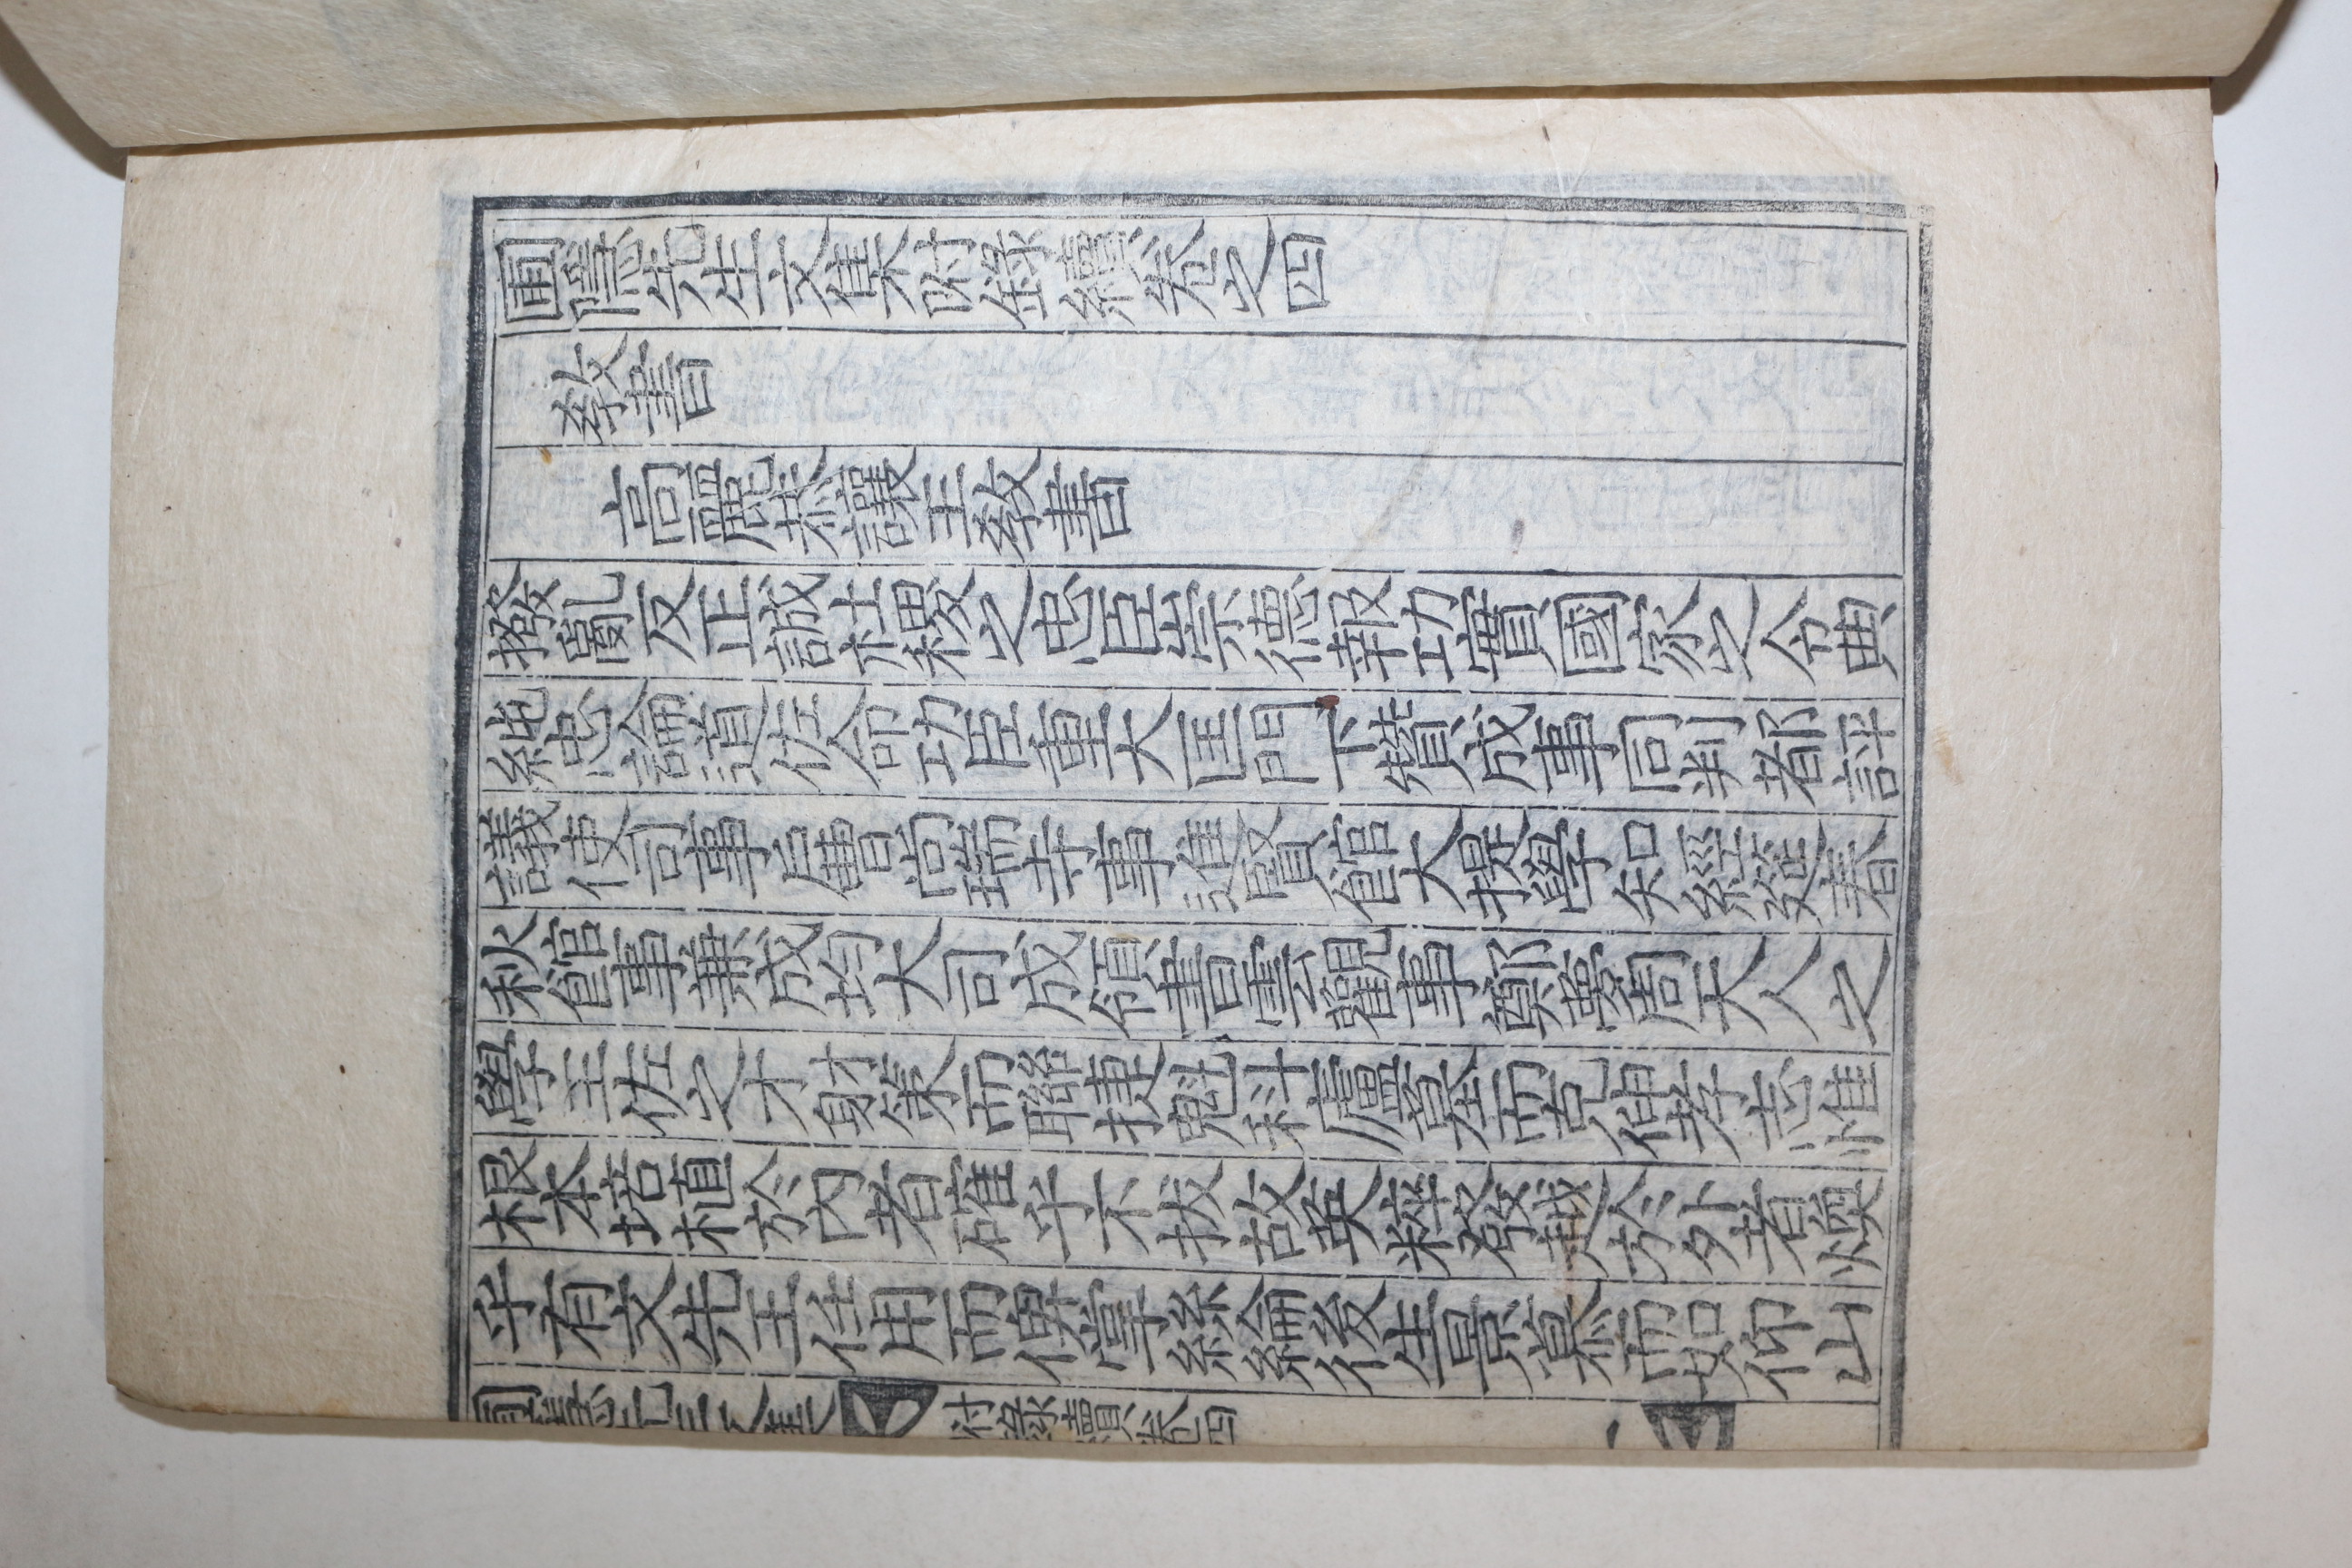 圃隱先生文集附錄續卷之四
教書
高麗恭讓王教書
撥亂反正誠社稷之忠臣崇德報功實國家之令典
純忠論道佐命功臣重大匡門下贊成事同判都評
議使司事戶曹尙瑞寺事進賢館大提學知經筵春
秋館事兼成均大司成領書雲觀事鄭夢周天人之
學王佐之才射策而聯捷魁科廬墓而克伸孝志惟
根本培植於內者確乎不拔故英粹發越於外者煥
乎有文先王任用而俾掌絲綸後生景慕而如仰山
圃隱先生文集 附錄續卷四